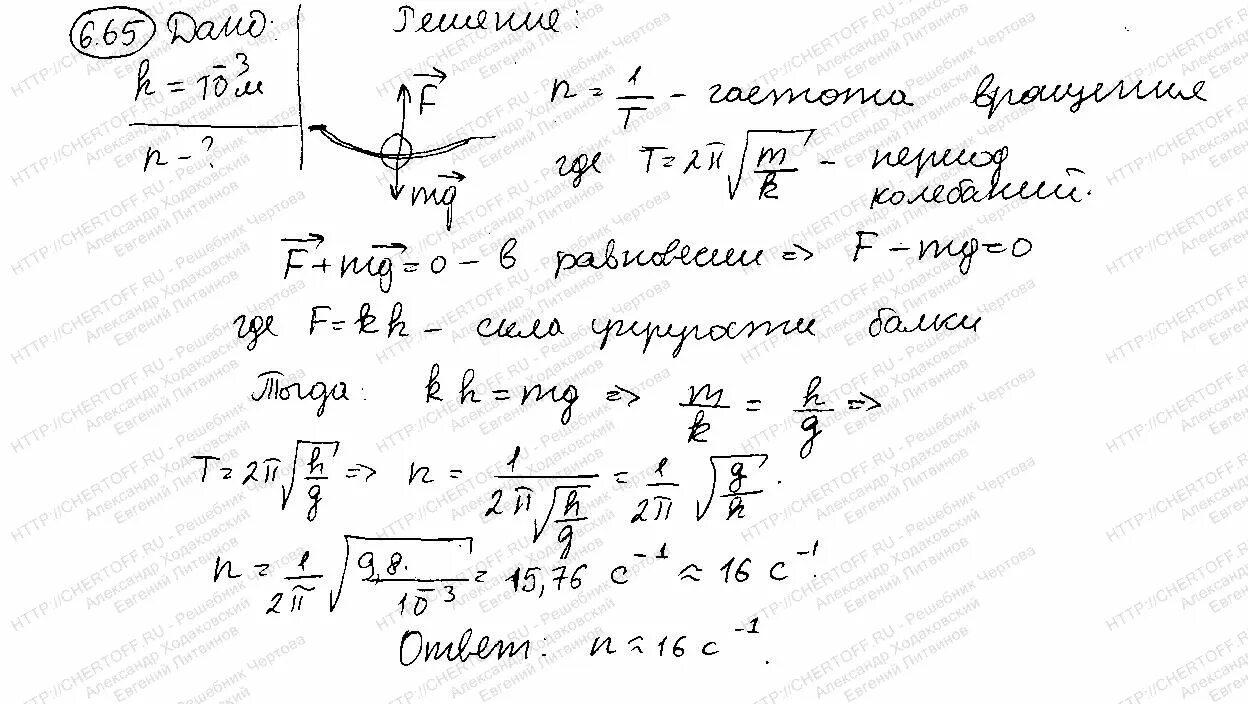 6.65 Дано: Решение:
h = 10⁻³ м
n - ?
F⃗
mg⃗
n = 1/T - частота вращения
где T = 2π√(m/k) - период
колебаний.
F⃗ + mg⃗ = 0 - в равновесии => F - mg = 0
где F = kh - сила упругости балки
Тогда: kh = mg => m/k = h/g =>
T = 2π√(h/g) => n = 1/(2π√(h/g)) = 1/2π √(g/h).
n = 1/2π √(9,8/10⁻³) = 15,76 с⁻¹ ≈ 16 с⁻¹.
Ответ: n ≈ 16 с⁻¹.
HTTP://CHERTOFF.RU - Решебник Чертова
Александр Ходаковский
Евгений Литвинов